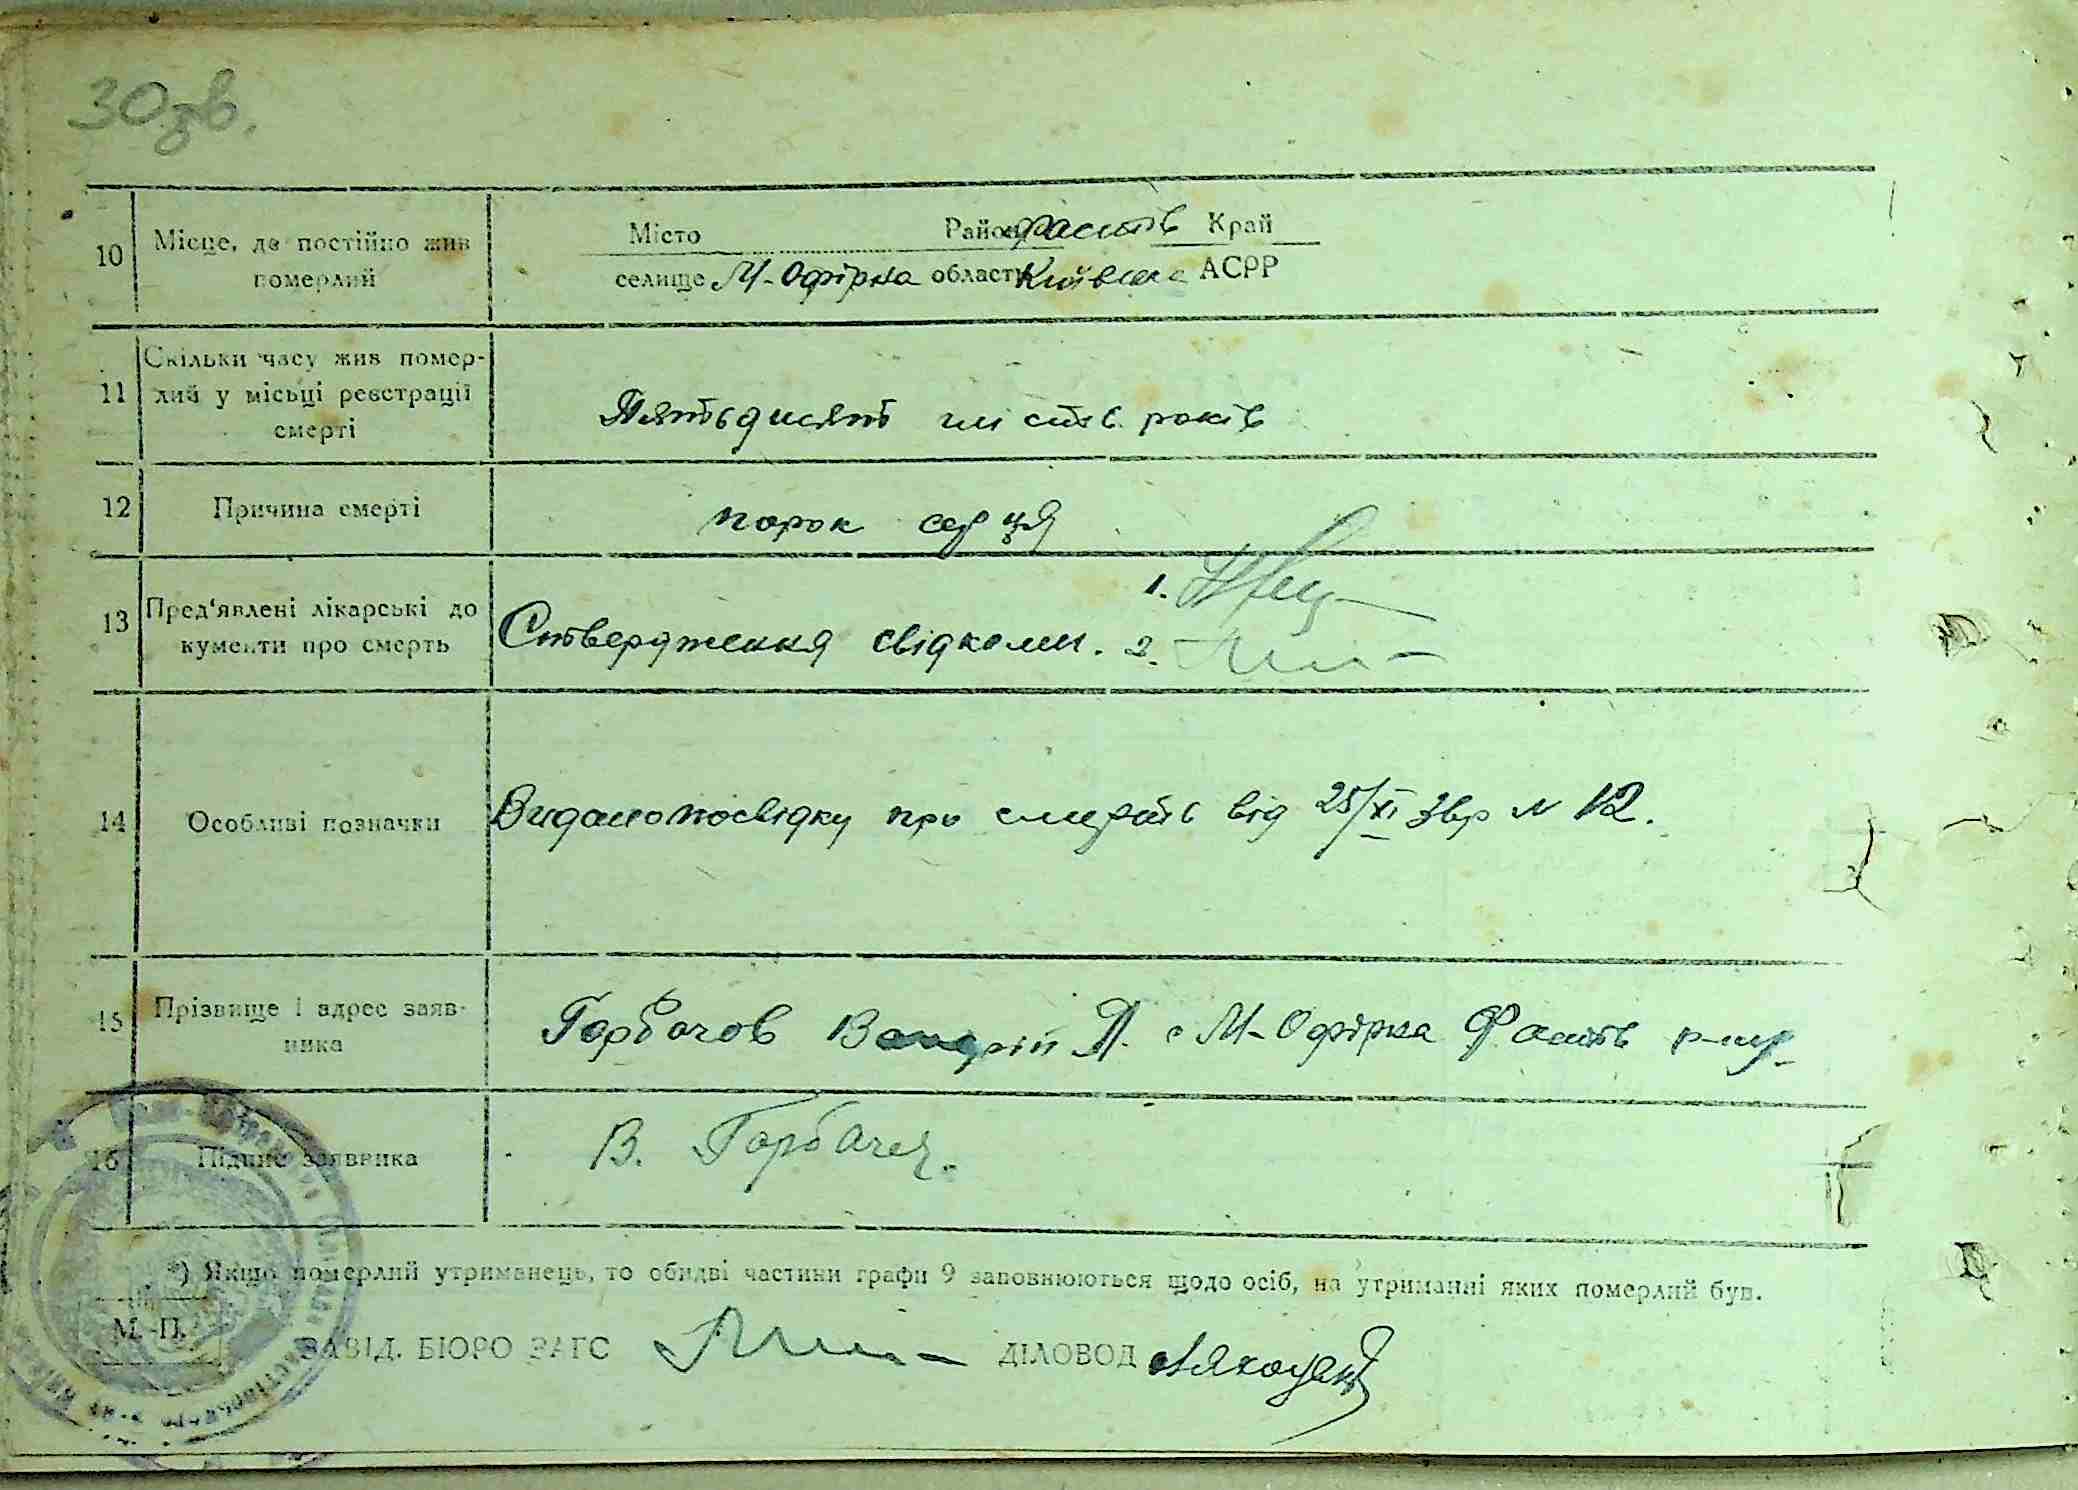 30зв.
10 Місце, де постійно жив померлий
Місто Район Фастів Край
селище М-Офірка області Київська АСРР
11 Скільки часу жив помер-
лий у місьці реєстрації
смерті
Пятьдисять шість років
12 Причина смерті
порок серця
13 Пред'явлені лікарські до
кументи про смерть
1.
Ствердження свідками. 2.
14 Особливі позначки
Видано посвідку про смерть від 25/XI 3 № 12.
15 Прізвище і адрес заяв-
ника
Горбачов А. с М-Офірка Фастів
16 Підпис заявника
В. Горбачев.
*) Якщо померлий утриманець, то обидві частини графи 9 заповнюються щодо осіб, на утриманні яких померлий був.
М.-П.
ЗАВІД. БЮРО ЗАГС ДІЛОВОД